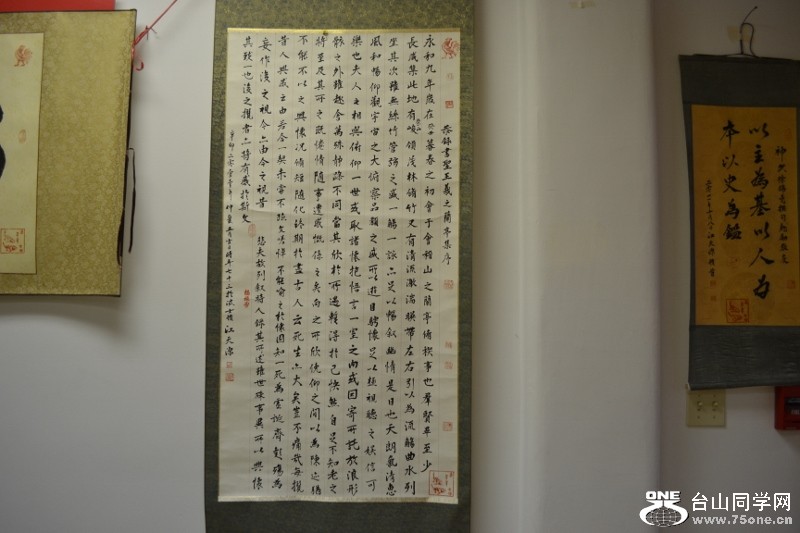 恭録書聖王羲之蘭亭集序
永和九年歲在癸丑暮春之初會于會稽山之蘭亭脩禊事也羣賢畢至少
長咸集此地有峻領茂林脩竹又有清流激湍暎帶左右引以為流觴曲水列
坐其次雖無絲竹管弦之盛一觴一詠亦足以暢叙幽情是日也天朗氣清惠
風和暢仰觀宇宙之大俯察品類之盛所以遊目騁懷足以極視聽之娛信可
樂也夫人之相與俯仰一世或取諸懷抱悟言一室之內或因寄所託放浪形
骸之外雖趣舍萬殊靜躁不同當其欣於所遇暫得於己快然自足不知老之
將至及其所之既惓情隨事遷感慨係之矣向之所欣俛仰之間以為陳迹猶
不能不以之興懷況脩短隨化終期於盡古人云死生亦大矣豈不痛哉每攬
昔人興感之由若合一契未嘗不臨文嗟悼不能喻之於懷固知一死為虛誕齊彭殤為
妄作後之視今亦由今之視昔 悲夫故列叙時人録其所述雖世殊事異所以興懷
其致一也後之攬者亦將有感於斯文
辛卯二零壹壹年仲夏 時年七十三於波士頓 江天
以主為基以人為
本以史為鑑
ONE 台山同学网
www.75one.cn